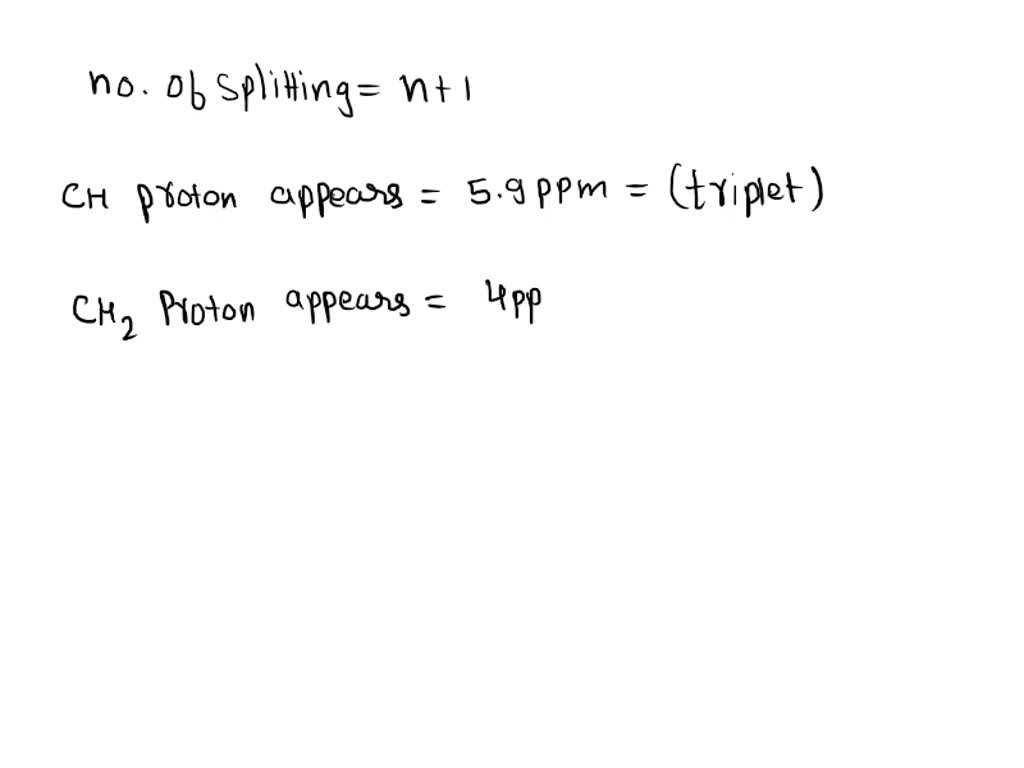 no. Of Splitting = n+1
CH proton appears = 5.9 ppm = (triplet)
CH₂ Proton appears = 4pp